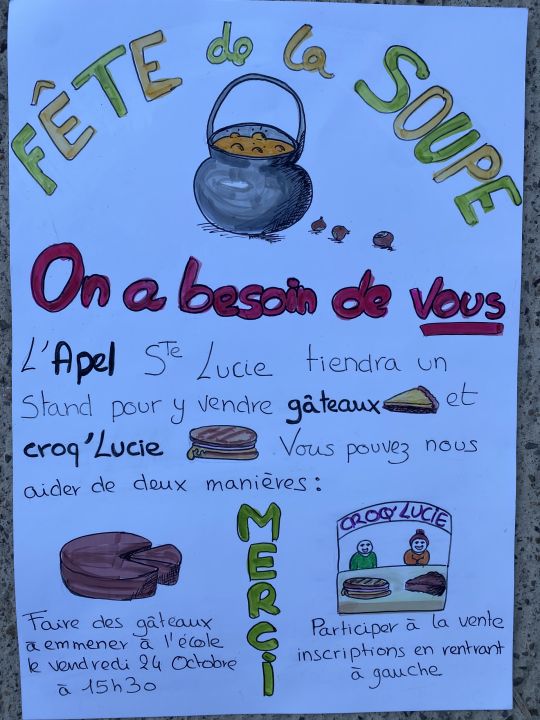 FÊTE de la SOUPE
On a besoin de vous
L'Apel Ste Lucie tiendra un
Stand pour y vendre gâteaux et
croq'Lucie . Vous pouvez nous
aider de deux manières :
Faire des gâteaux
a emmener à l'école
le vendredi 24 Octobre
à 15h30
MERCi
CROQ'LUCIE
Participer à la vente
inscriptions en rentrant
à gauche